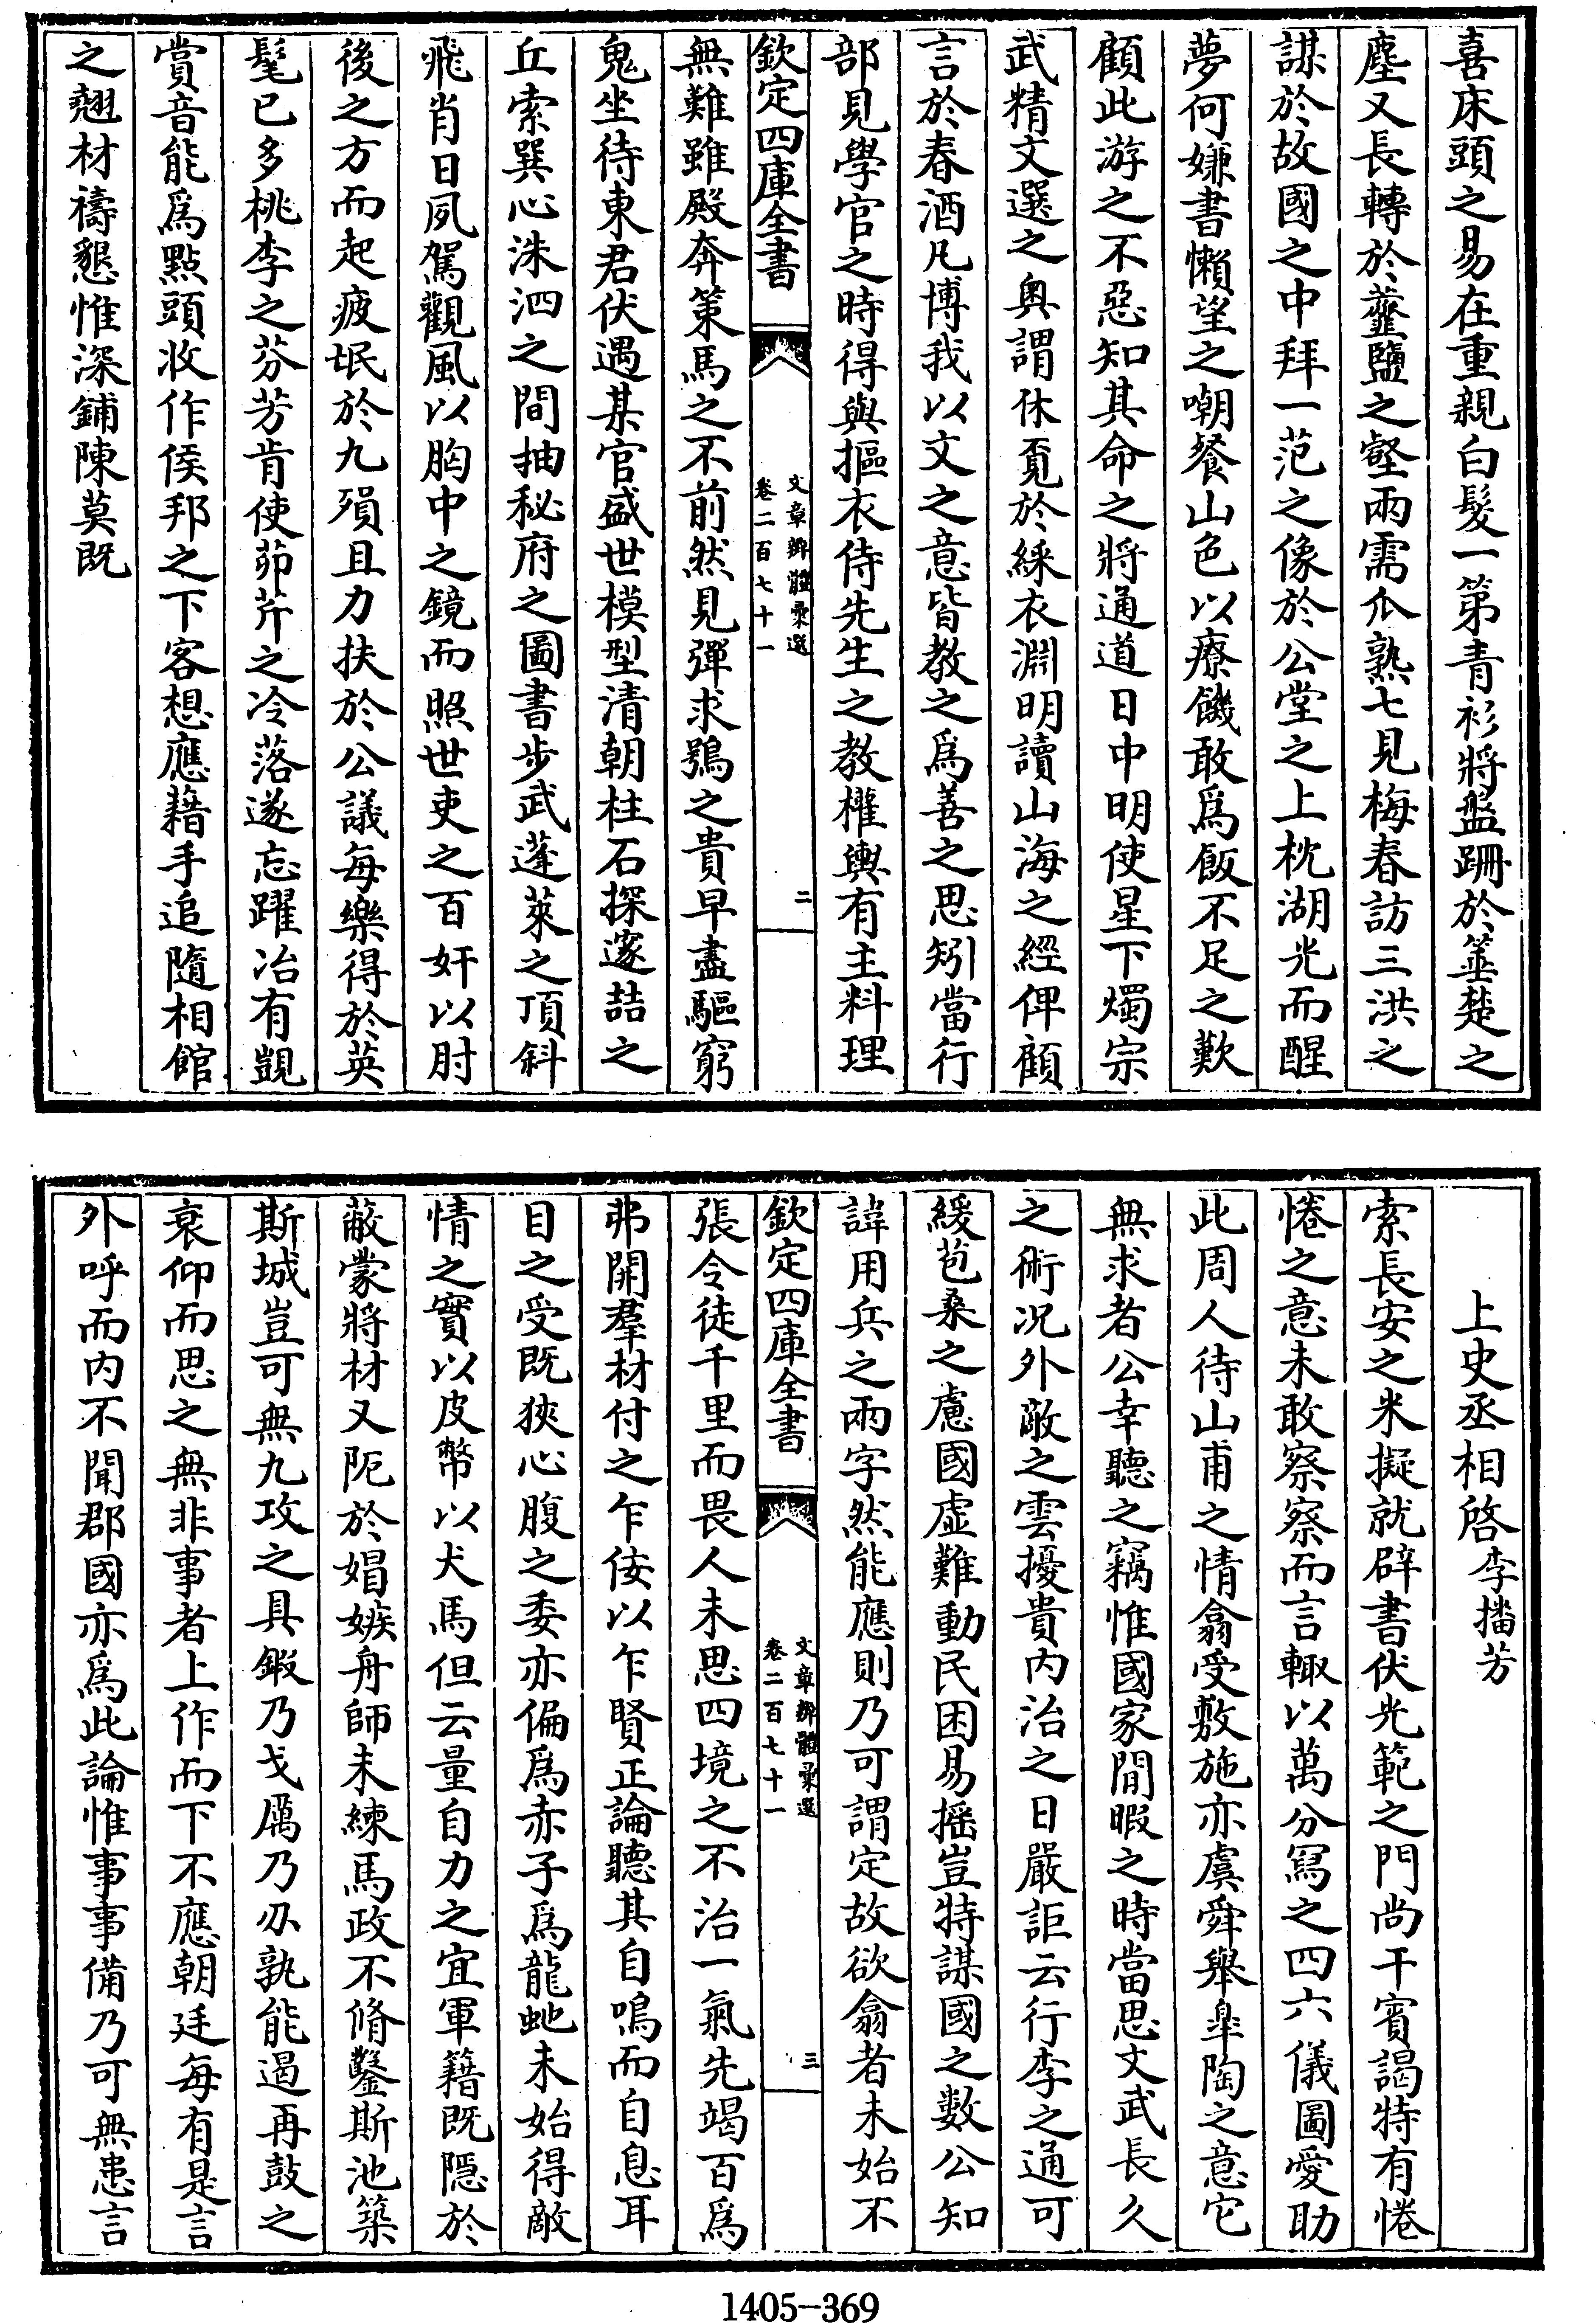 喜床頭之易在重親白髮一第青衫將盤跚於箠楚之
塵又長轉於虀鹽之壑兩需爪熟七見梅春訪三洪之
謀於故國之中拜一范之像於公堂之上枕湖光而醒
夢何嫌書懶望之嘲餐山色以療饑敢爲飯不足之歎
顧此游之不惡知其命之將通道日中明使星下燭宗
武精文選之奥謂休覔於綵衣淵明讀山海之經俾顧
言於春酒凡博我以文之意皆教之爲善之思矧當行
部見學官之時得與摳衣侍先生之教權輿有主料理
欽定四庫全書
文章辨體彙選
卷二百七十一
二
無難雖殿奔策馬之不前然見彈求鴞之貴早盡驅窮
鬼坐待東君伏遇某官盛世模型清朝柱石探邃喆之
丘索巽心洙泗之間抽秘府之圖書步武蓬萊之頂斜
飛肖日夙駕觀風以胸中之鏡而照世吏之百奸以肘
後之方而起疲氓於九殞且力扶於公議每樂得於英
髦已多桃李之芬芳肯使茆芹之冷落遂忘躍冶有覬
賞音能爲點頭收作侯邦之下客想應藉手追隨相館
之翹材禱懇惟深鋪陳莫既
上史丞相啓 李播芳
索長安之米擬就辟書伏光範之門尚干賓謁特有惓
惓之意未敢察察而言輙以萬分冩之四六儀圖愛助
此周人待山甫之情翕受敷施亦虞舜舉臯陶之意它
無求者公幸聽之竊惟國家閒暇之時當思文武長久
之術况外敵之雲擾貴内治之日嚴詎云行李之通可
緩苞桑之慮國虚難動民困易摇豈特謀國之數公知
諱用兵之兩字然能應則乃可謂定故欲翕者未始不
欽定四庫全書
文章辨體彙選
卷二百七十一
三
張令徒千里而畏人未思四境之不治一氣先竭百爲
弗開羣材付之乍佞以乍賢正論聽其自鳴而自息耳
目之受既狹心腹之委亦偏爲赤子爲龍虵未始得敵
情之實以皮幣以犬馬但云量自力之宜軍籍既隱於
蔽蒙將材又阨於娼嫉舟師未練馬政不脩鑿斯池築
斯城豈可無九攻之具鍜乃戈厲乃刃孰能遏再鼓之
衰仰而思之無非事者上作而下不應朝廷每有是言
外呼而内不聞郡國亦爲此論惟事事備乃可無患言
1405-369